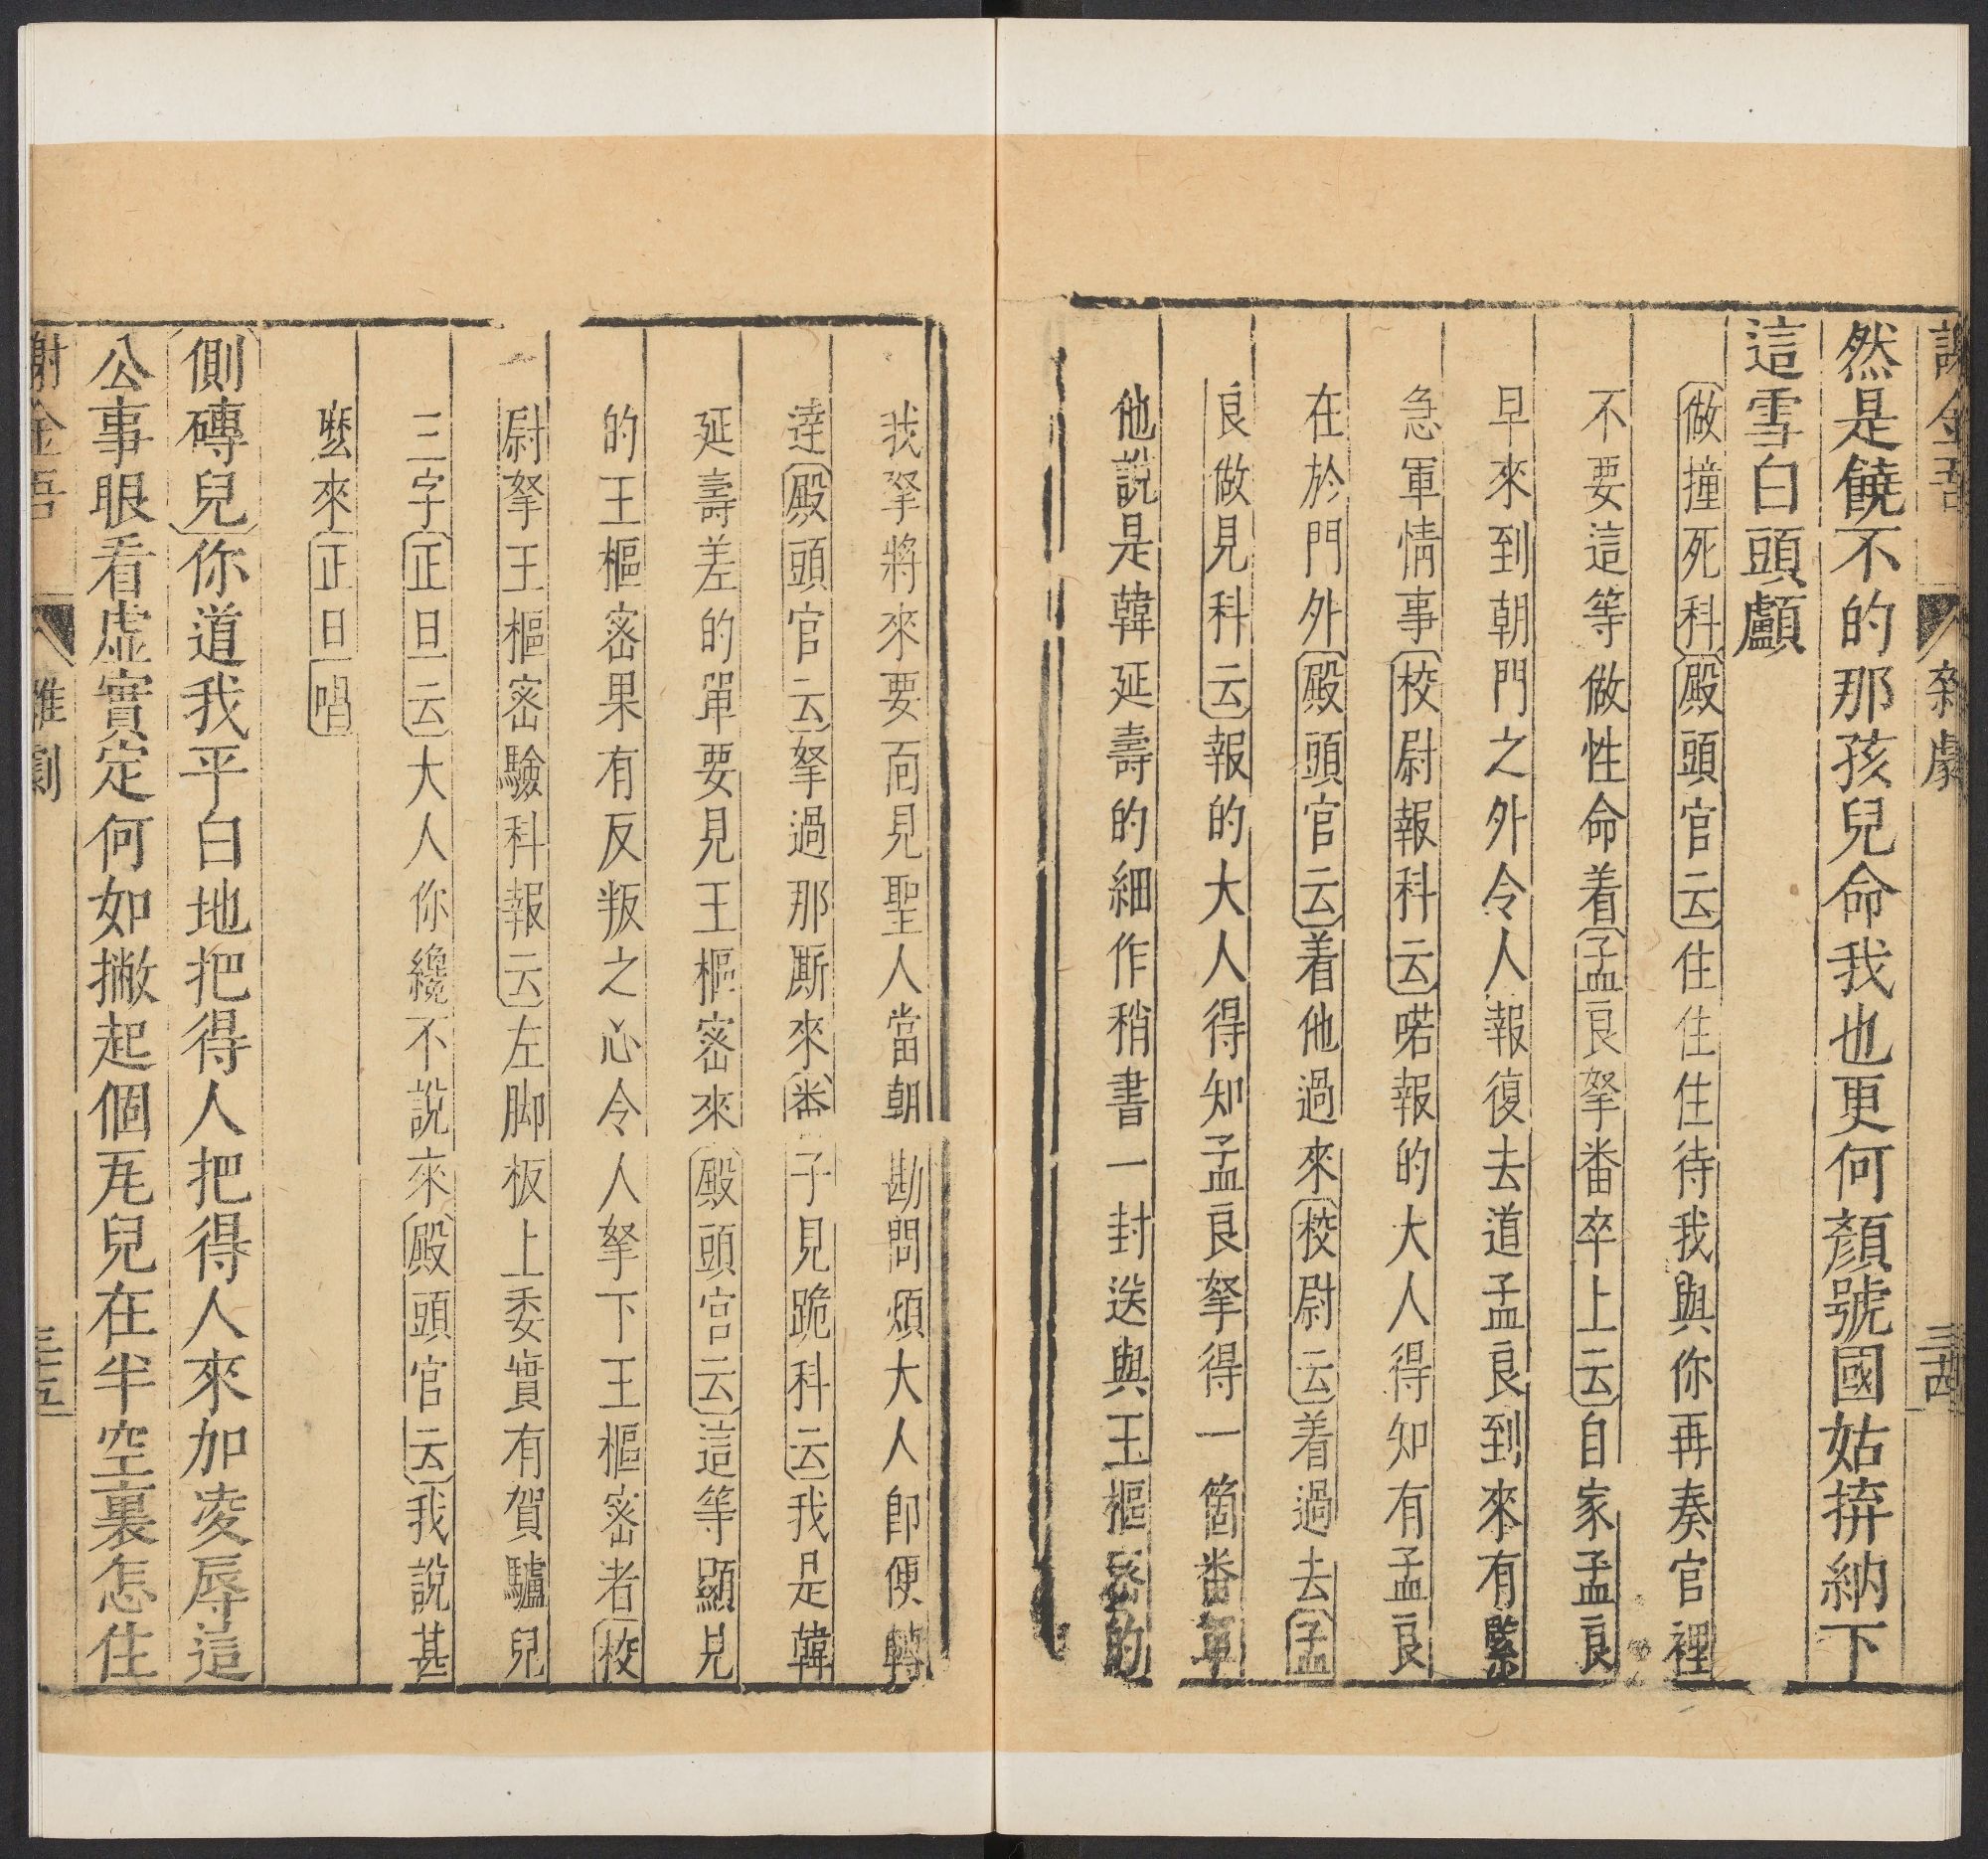 謝金吾 雜劇 三十四
然是饒不的那孩兒命我也更何顏號國姑拚納下
這雪白頭顱
做撞死科殿頭官云住住住待我與你再奏官裡
不要這等做性命着孟良拏番卒上云自家孟良
早來到朝門之外令人報復去道孟良到來有緊
急軍情事校尉報科云喏報的大人得知有孟良
在於門外殿頭官云着他過來校尉云着過去孟
良做見科云報的大人得知孟良拏得一箇番軍
他說是韓延壽的細作稍書一封送與王樞密的
我拏將來要面見聖人當朝勘問煩大人卽便轉
達殿頭官云拏過那厮來番子見跪科云我是韓
延壽差的單要見王樞密來殿頭官云這等顯見
的王樞密果有反叛之心令人拏下王樞密者校
尉拏王樞密驗科報云左脚板上委實有賀驢兒
三字正旦云大人你纔不說來殿頭官云我說甚
麽來正旦唱
側磚兒你道我平白地把得人把得人來加凌辱這
公事眼看虛實定何如撇起個瓦兒在半空裏怎住
謝金吾 雜劇 三十五